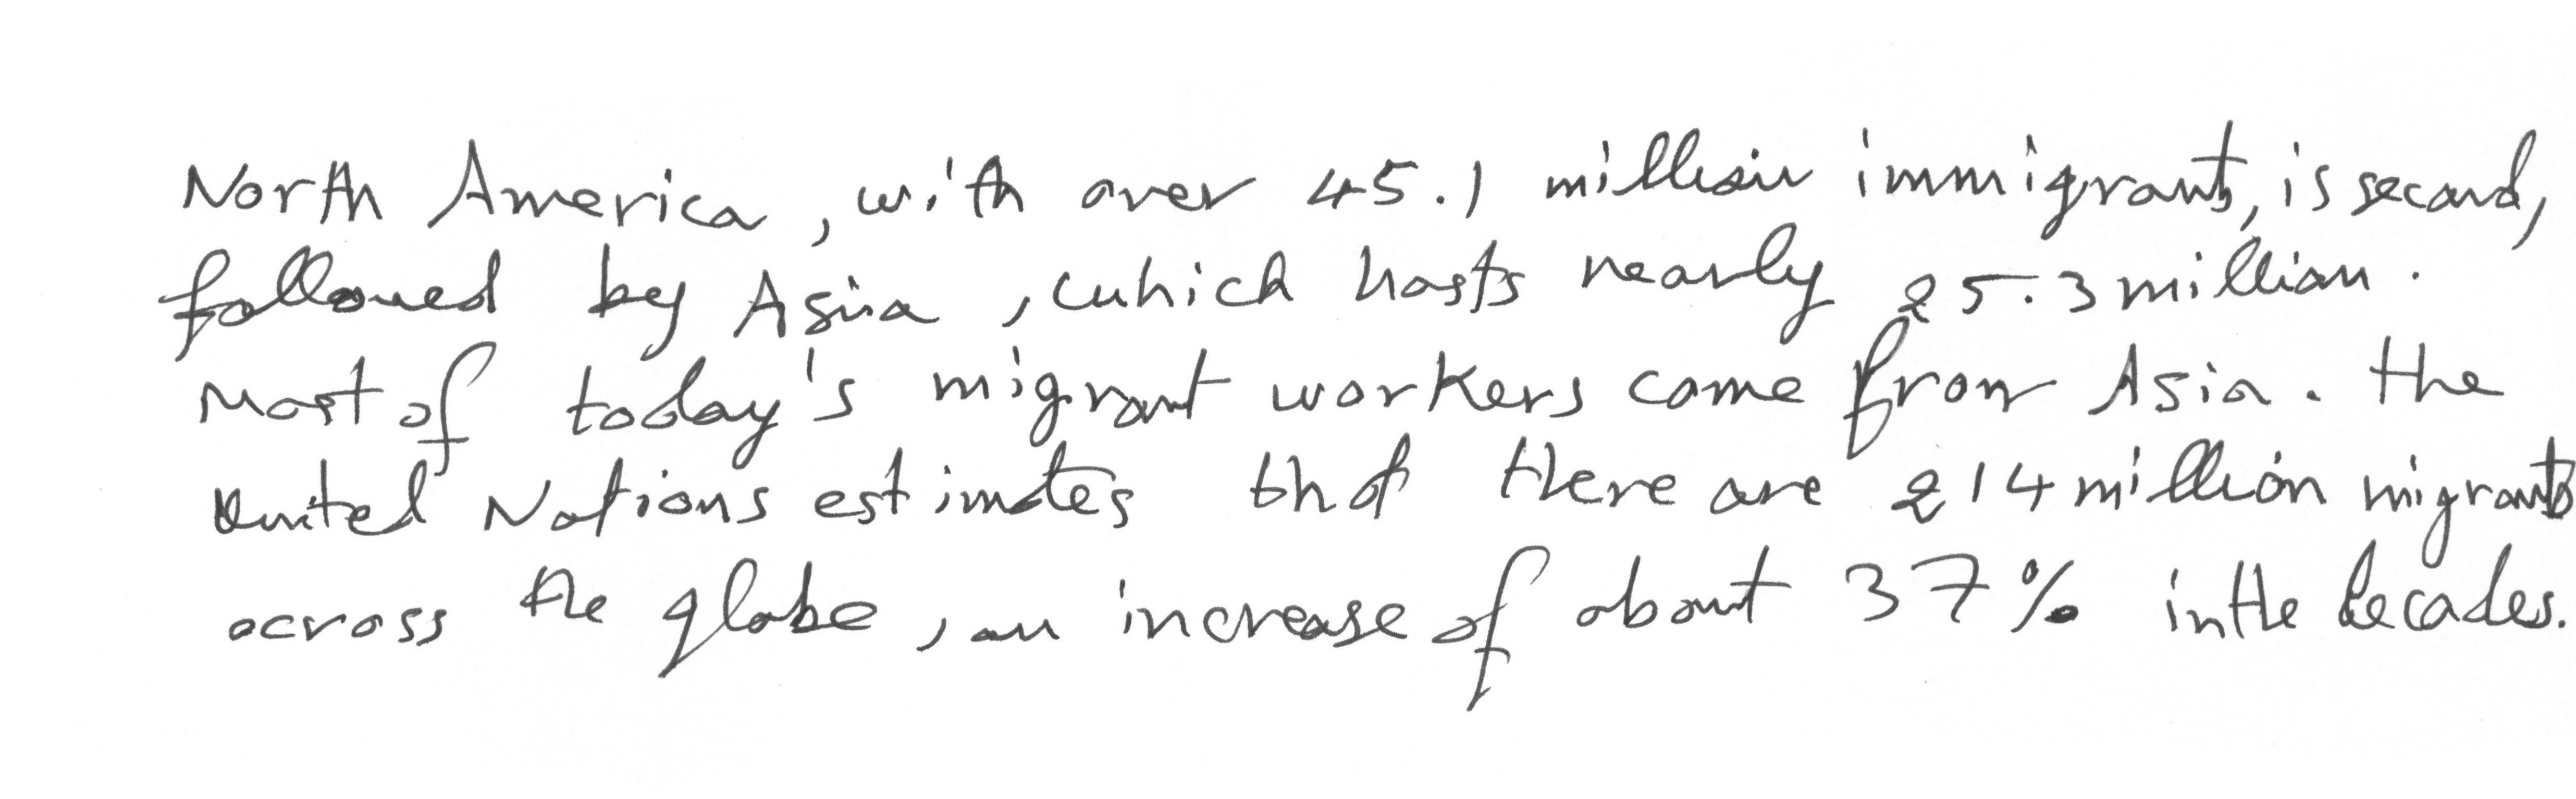 North America, with over 45.1 million immigrants, is second,
followed by Asia, which hosts nearly 25.3 million.
Most of today's migrant workers come from Asia. the
United Nations estimates that there are 214 million migrants
across the globe, an increase of about 37% in the decades.